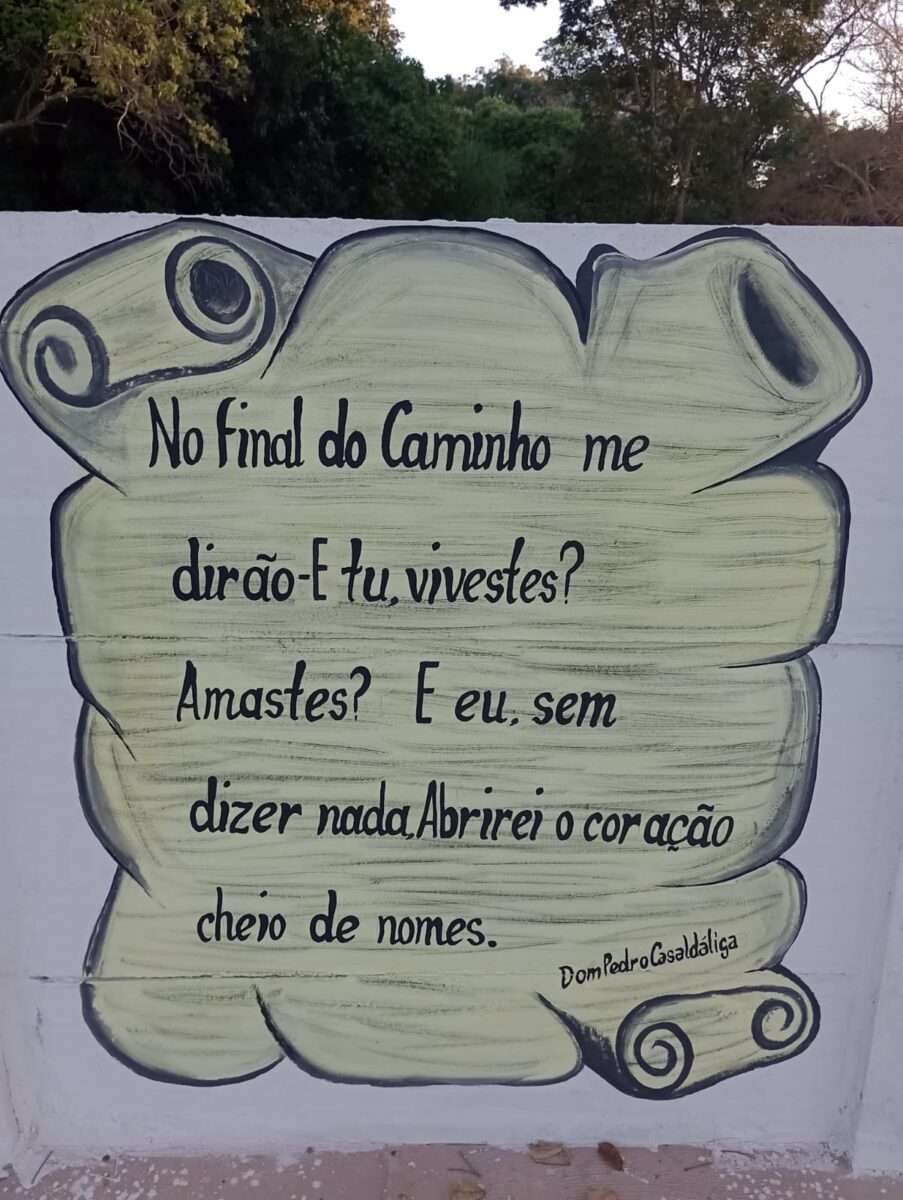 No Final do Caminho me
dirão-E tu, vivestes?
Amastes? E eu, sem
dizer nada, Abrirei o coração
cheio de nomes.
Dom Pedro Casaldáliga